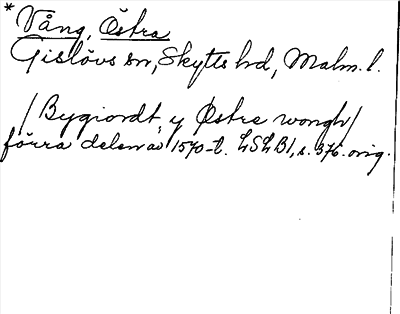 * Vång, Östra
Gislövs sn, Skytts hd, Malm. l.
/Bygiordt y Østre wongh/
förra delen av 1570-t. LSLB1, s. 376. orig.